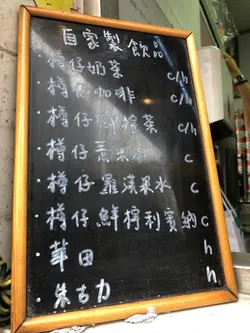 自家製飲品
樽仔奶茶 c/h
樽仔咖啡 c/h
樽仔鮮檸茶 c/h
樽仔薏米水 c
樽仔羅漢果水 c
樽仔鮮檸利賓納 c
華田 h
朱古力 h